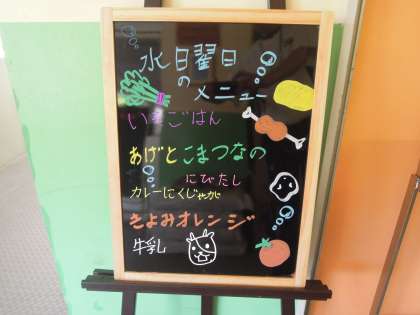 水曜日
の
メニュー
ごはん
あげとこまつなの
にびたし
カレーにくじゃが
きよみオレンジ
牛乳